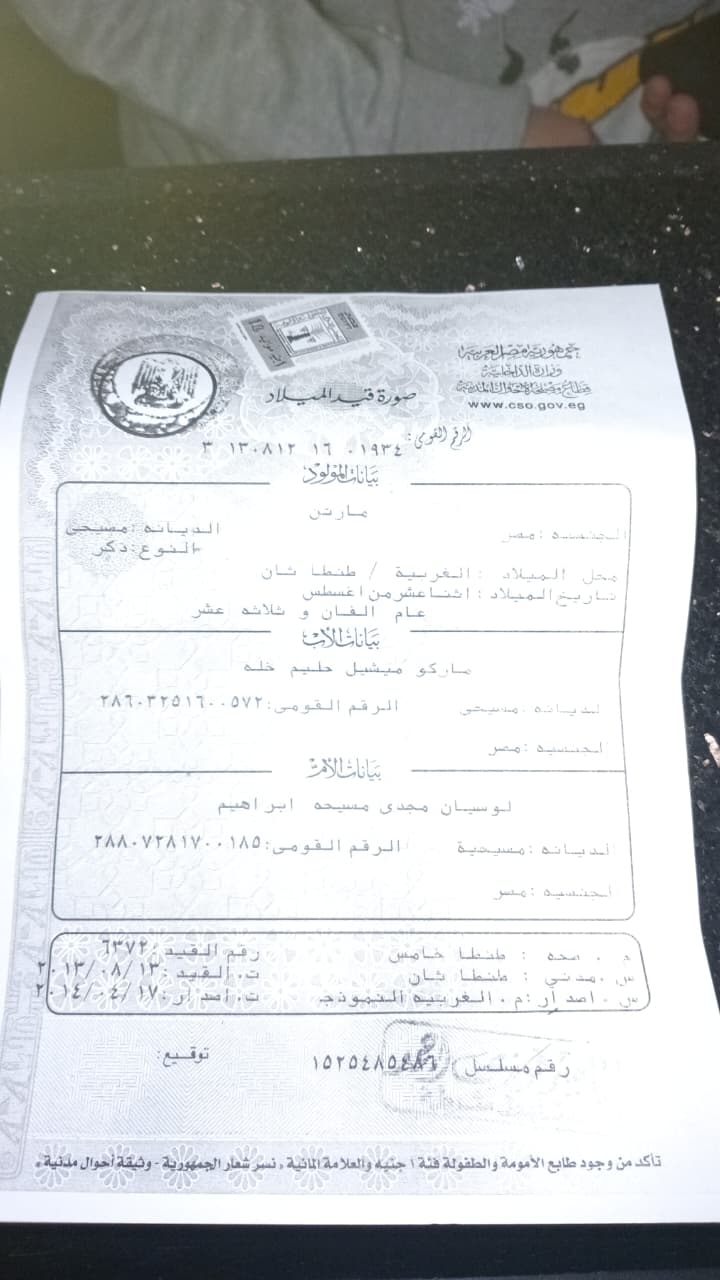 جمهورية مصر العربية
وزارة الداخلية
قطاع مصلحة الأحوال المدنية
www.cso.gov.eg
صورة قيد الميلاد
الرقم القومى: ٣ ١٣٠٨١٢ ١٦ ٠١٩٣٤
بيانات المولود
مارتن
الجنسيه :مصر
الديانه :مسيحى
النوع :ذكر
محل الميلاد : الغربية / طنطا ثان
تاريخ الميلاد : اثنا عشر من اغسطس
عام الفان و ثلاثه عشر
بيانات الأب
ماركو ميشيل حليم خله
الديانه :مسيحى
الرقم القومى:٢٨٦٠٣٢٥١٦٠٠٥٧٢
الجنسيه :مصر
بيانات الأم
لوسيان مجدى مسيحه ابراهيم
الديانه :مسيحية
الرقم القومى:٢٨٨٠٧٢٨١٧٠٠١٨٥
الجنسيه :مصر
م . صحه : طنطا خامس رقم القيد :٦٣٧٢
س .مدني : طنطا ثان ت. القيد :٢٠١٣/٠٨/١٣
س . اصدار :م . الغربيه النموذجـ ت. اصدار :٢٠١٤/٠٤/١٧
رقم مسلسل : ١٥٢٥٤٨٥٤٨٦
توقيع:
تأكد من وجود طابع الأمومة والطفولة فئة ١ جنيه والعلامة المائية ، نسر شعار الجمهورية - وثيقة أحوال مدنية ،